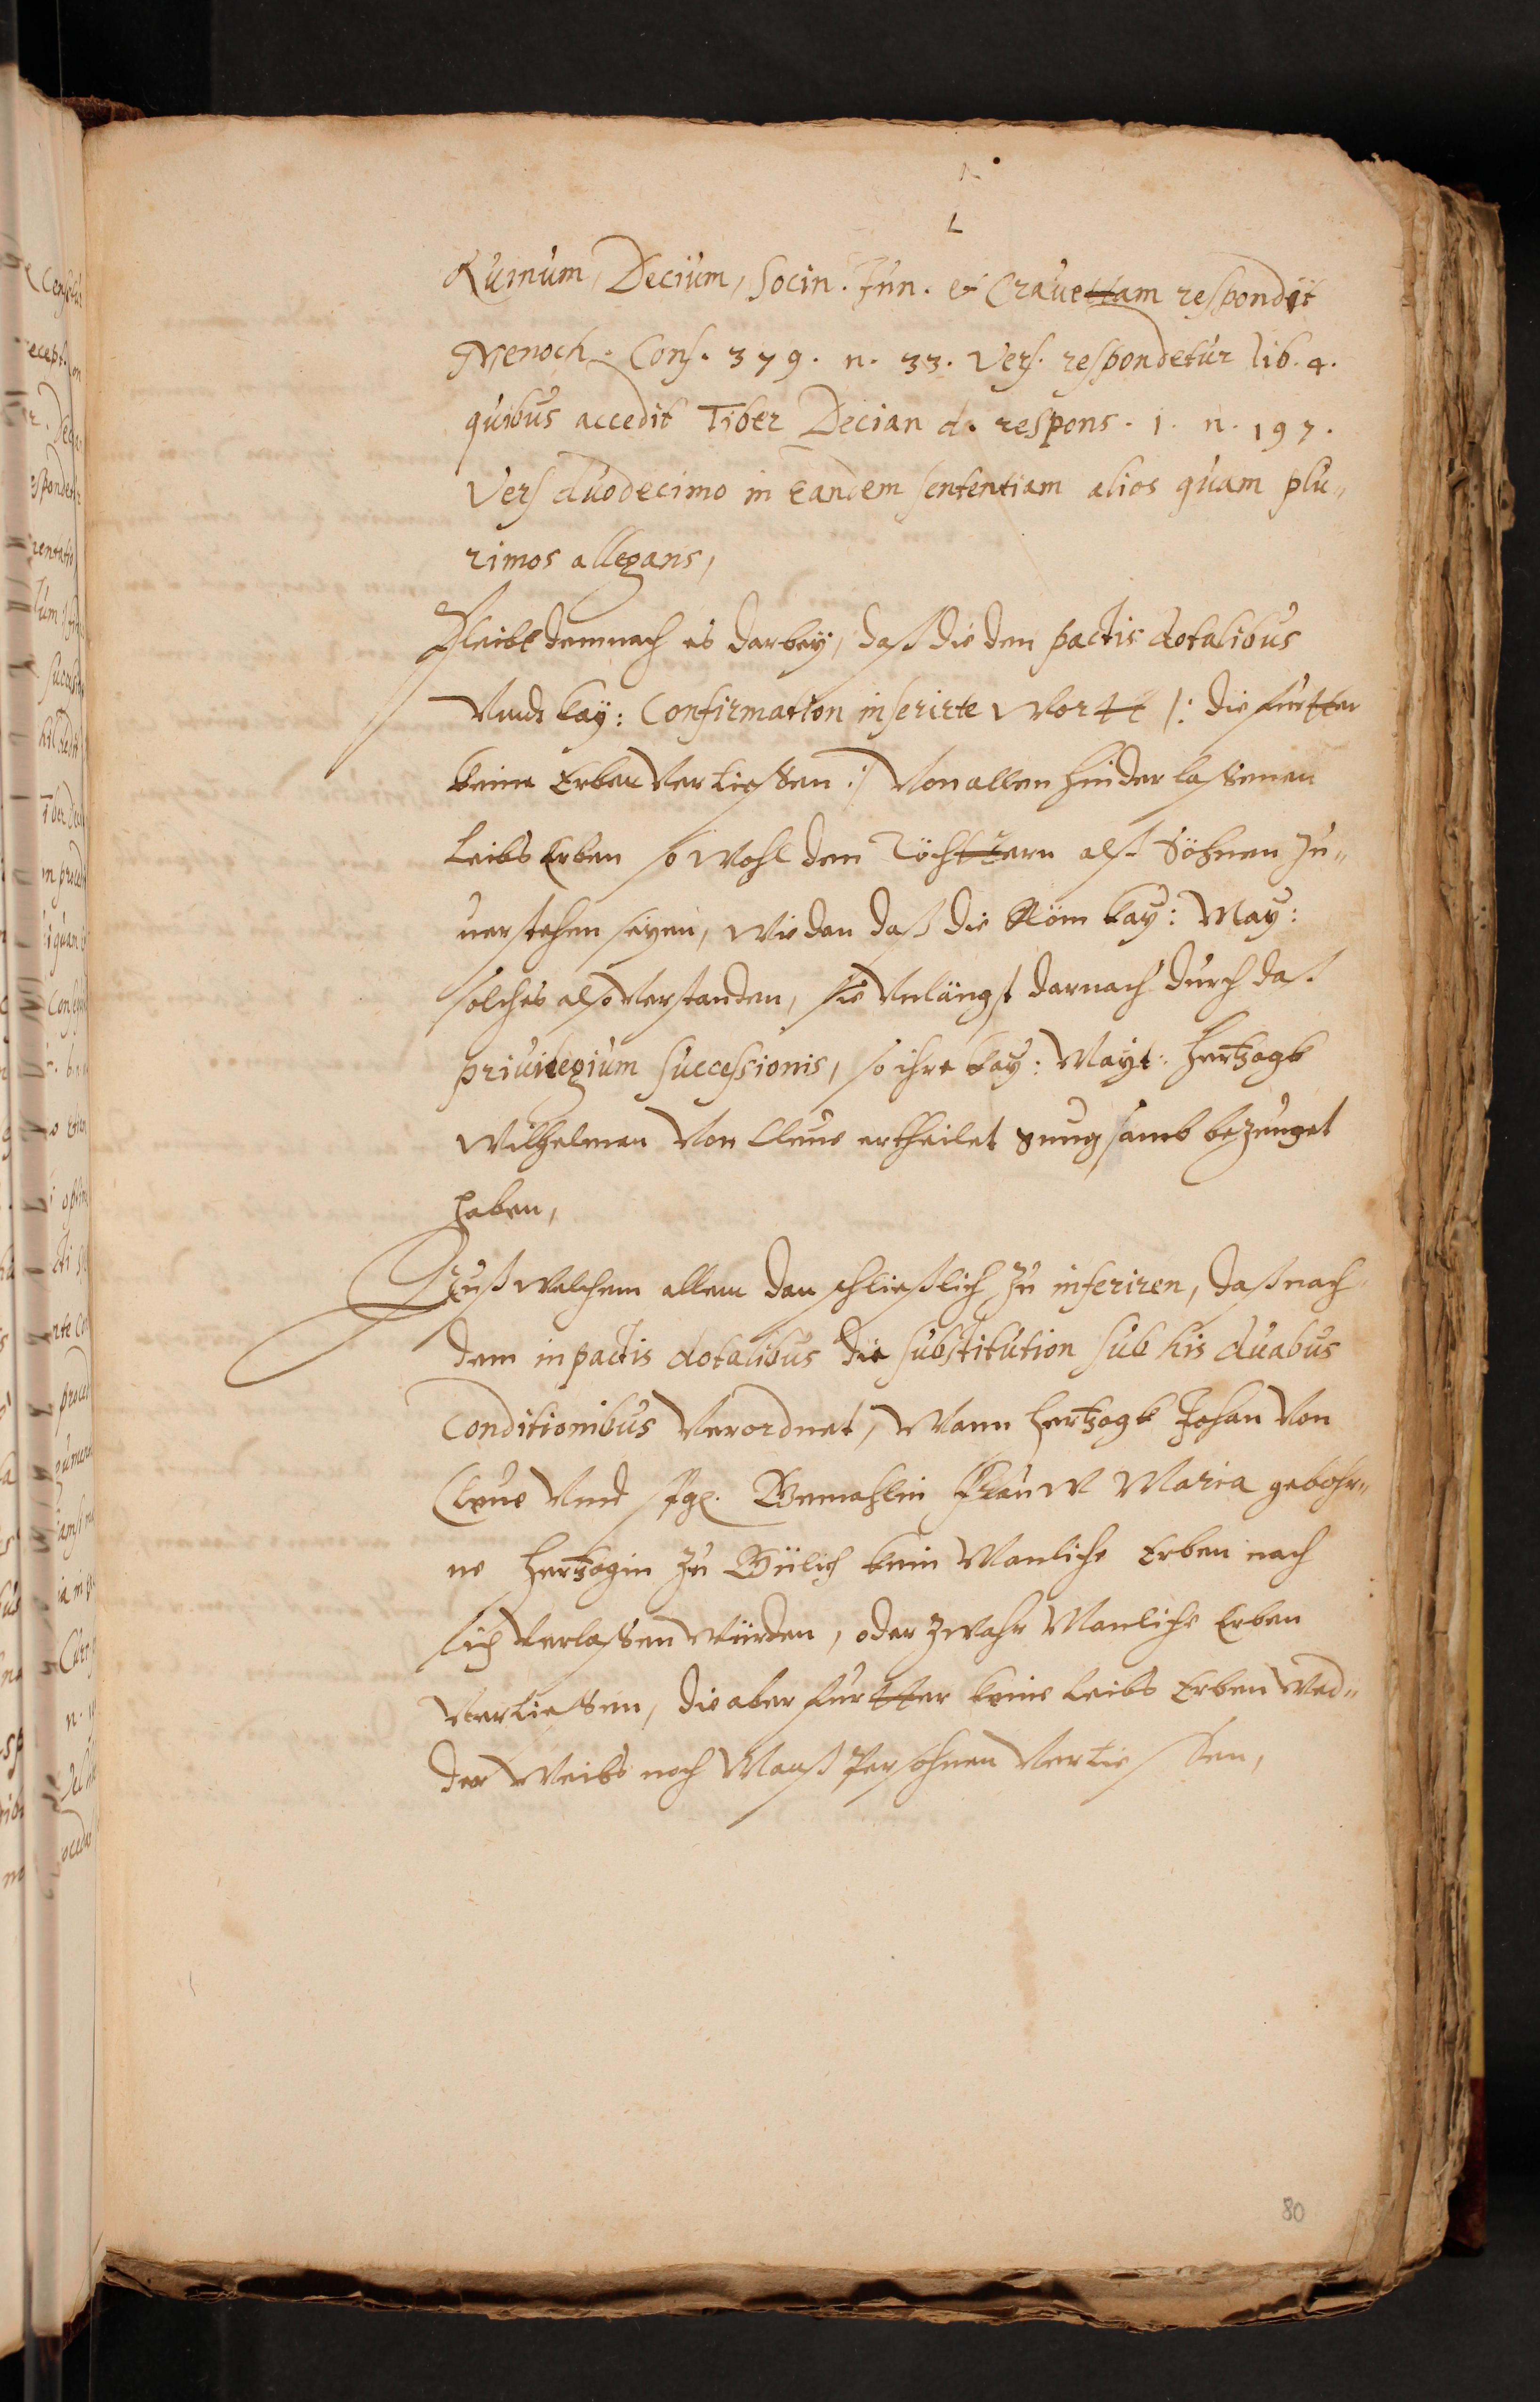 Ruinum, Decium, Socin. Jun. & Crauettam respondit
Menoch. Cons. 379. n. 33. Vers. respondetur lib. 4.
quibus accedit Tiber Decian d. respons. 1. n. 197.
Vers duodecimo in eandem sententiam alios quam plu„
rimos allegans,
Bleibt demnach es darbeÿ, daß die den pactis dotalibus
Vnndt kaÿ: Confirmation inserirte Wortt |: die furtter
keine Erben Verliessen :| Von allen hinderlassenen
Leibs Erben so wohl den Töchttern alß Söhnen zu„
uerstehen seyen, wie dan daß die Röm kay: May:
solches also Verstanden, sie Vnlängst darnach durch daß
priuilegium successionis, so ihre kay: Mayt: Hertzogk
Wilhelmen Von Cleue ertheilet gnugsamb bezeuget
haben,
Auß welchem allem dan schließlich zu inferiren, daß nach
dem in pactis dotalibus die substitution sub his duabus
Conditionibus Verordnet, Wann Hertzogk Johan Von
Cleue Vnd Gemahlin Frauw Maria gebohr„
ne Hertzogin zu Gülich kein Manliche Erben nach
sich Verlassen würden, oder zwahr Manliche Erben
Verliessen, die aber furtter keine Leibs Erben wed„
der Weibs noch Manß Persohnen Verliessen,
80